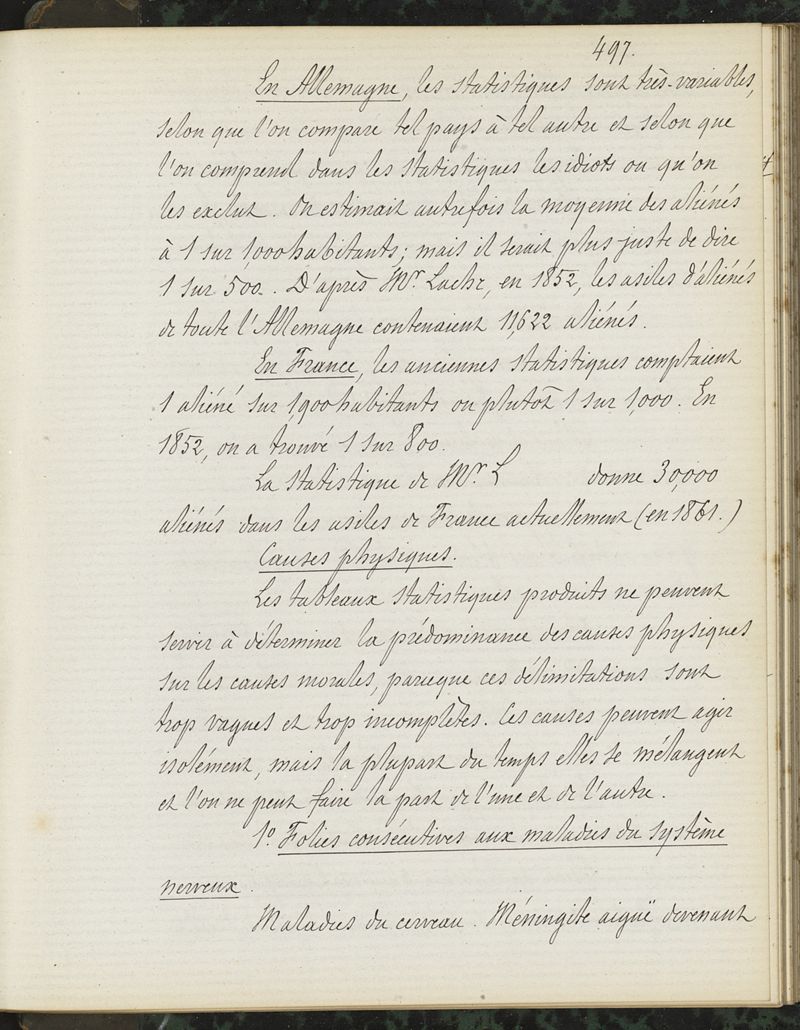 497.
En Allemagne, les statistiques sont très-variables,
selon que l'on compare tel pays à tel autre et selon que
l'on comprend dans les statistiques les idiots ou qu'on
les exclut. On estimait autrefois la moyenne des aliénés
à 1 sur 1,000 habitants; mais il serait plus juste de dire
1 sur 500. D'après Mr. Laehr, en 1852, les asiles d'aliénés
de toute l'Allemagne contenaient 11,622 aliénés.
En France, les anciennes statistiques comptaient
1 aliéné sur 1,900 habitants ou plutôt 1 sur 1,000. En
1852, on a trouvé 1 sur 800.
La statistique de Mr. L donne 30,000
aliénés dans les asiles de France actuellement (en 1861.)
Causes physiques.
Les tableaux statistiques produits ne peuvent
servir à déterminer la prédominance des causes physiques
sur les causes morales, parceque ces délimitations sont
trop vagues et trop incomplètes. Ces causes peuvent agir
isolément, mais la plupart du temps elles se mélangent
et l'on ne peut faire la part de l'une et de l'autre.
1º Folies consécutives aux maladies du système
nerveux.
Maladies du cerveau. Méningite aiguë devenant